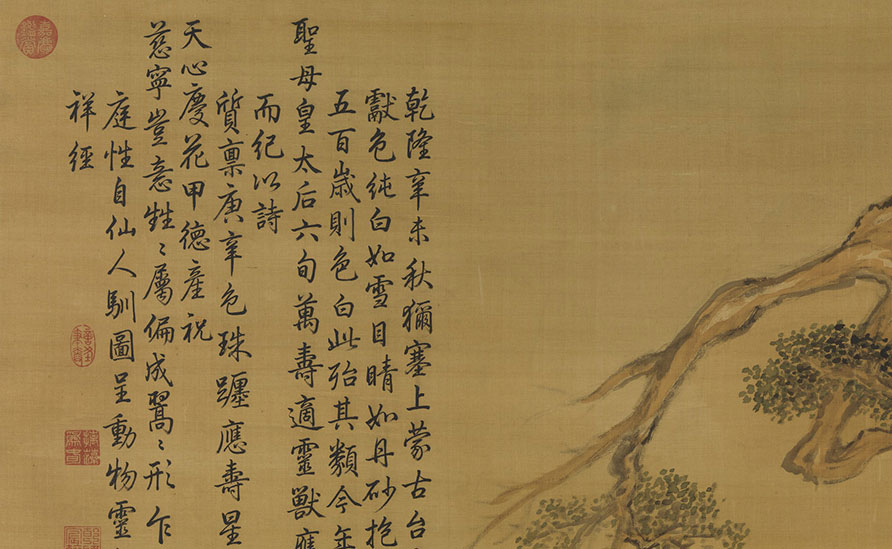 乾隆辛未秋獮塞上蒙古台
獻色純白如雪目睛如丹砂抱
五百歲則色白此殆其類今年
聖母皇太后六旬萬壽適靈獸應
而紀以詩
質稟庚辛色珠躔應壽星
天心慶花甲德產祝
慈寧豈意甡〻屬偏成翯〻形乍
庭性自仙人馴圖呈動物靈
祥經